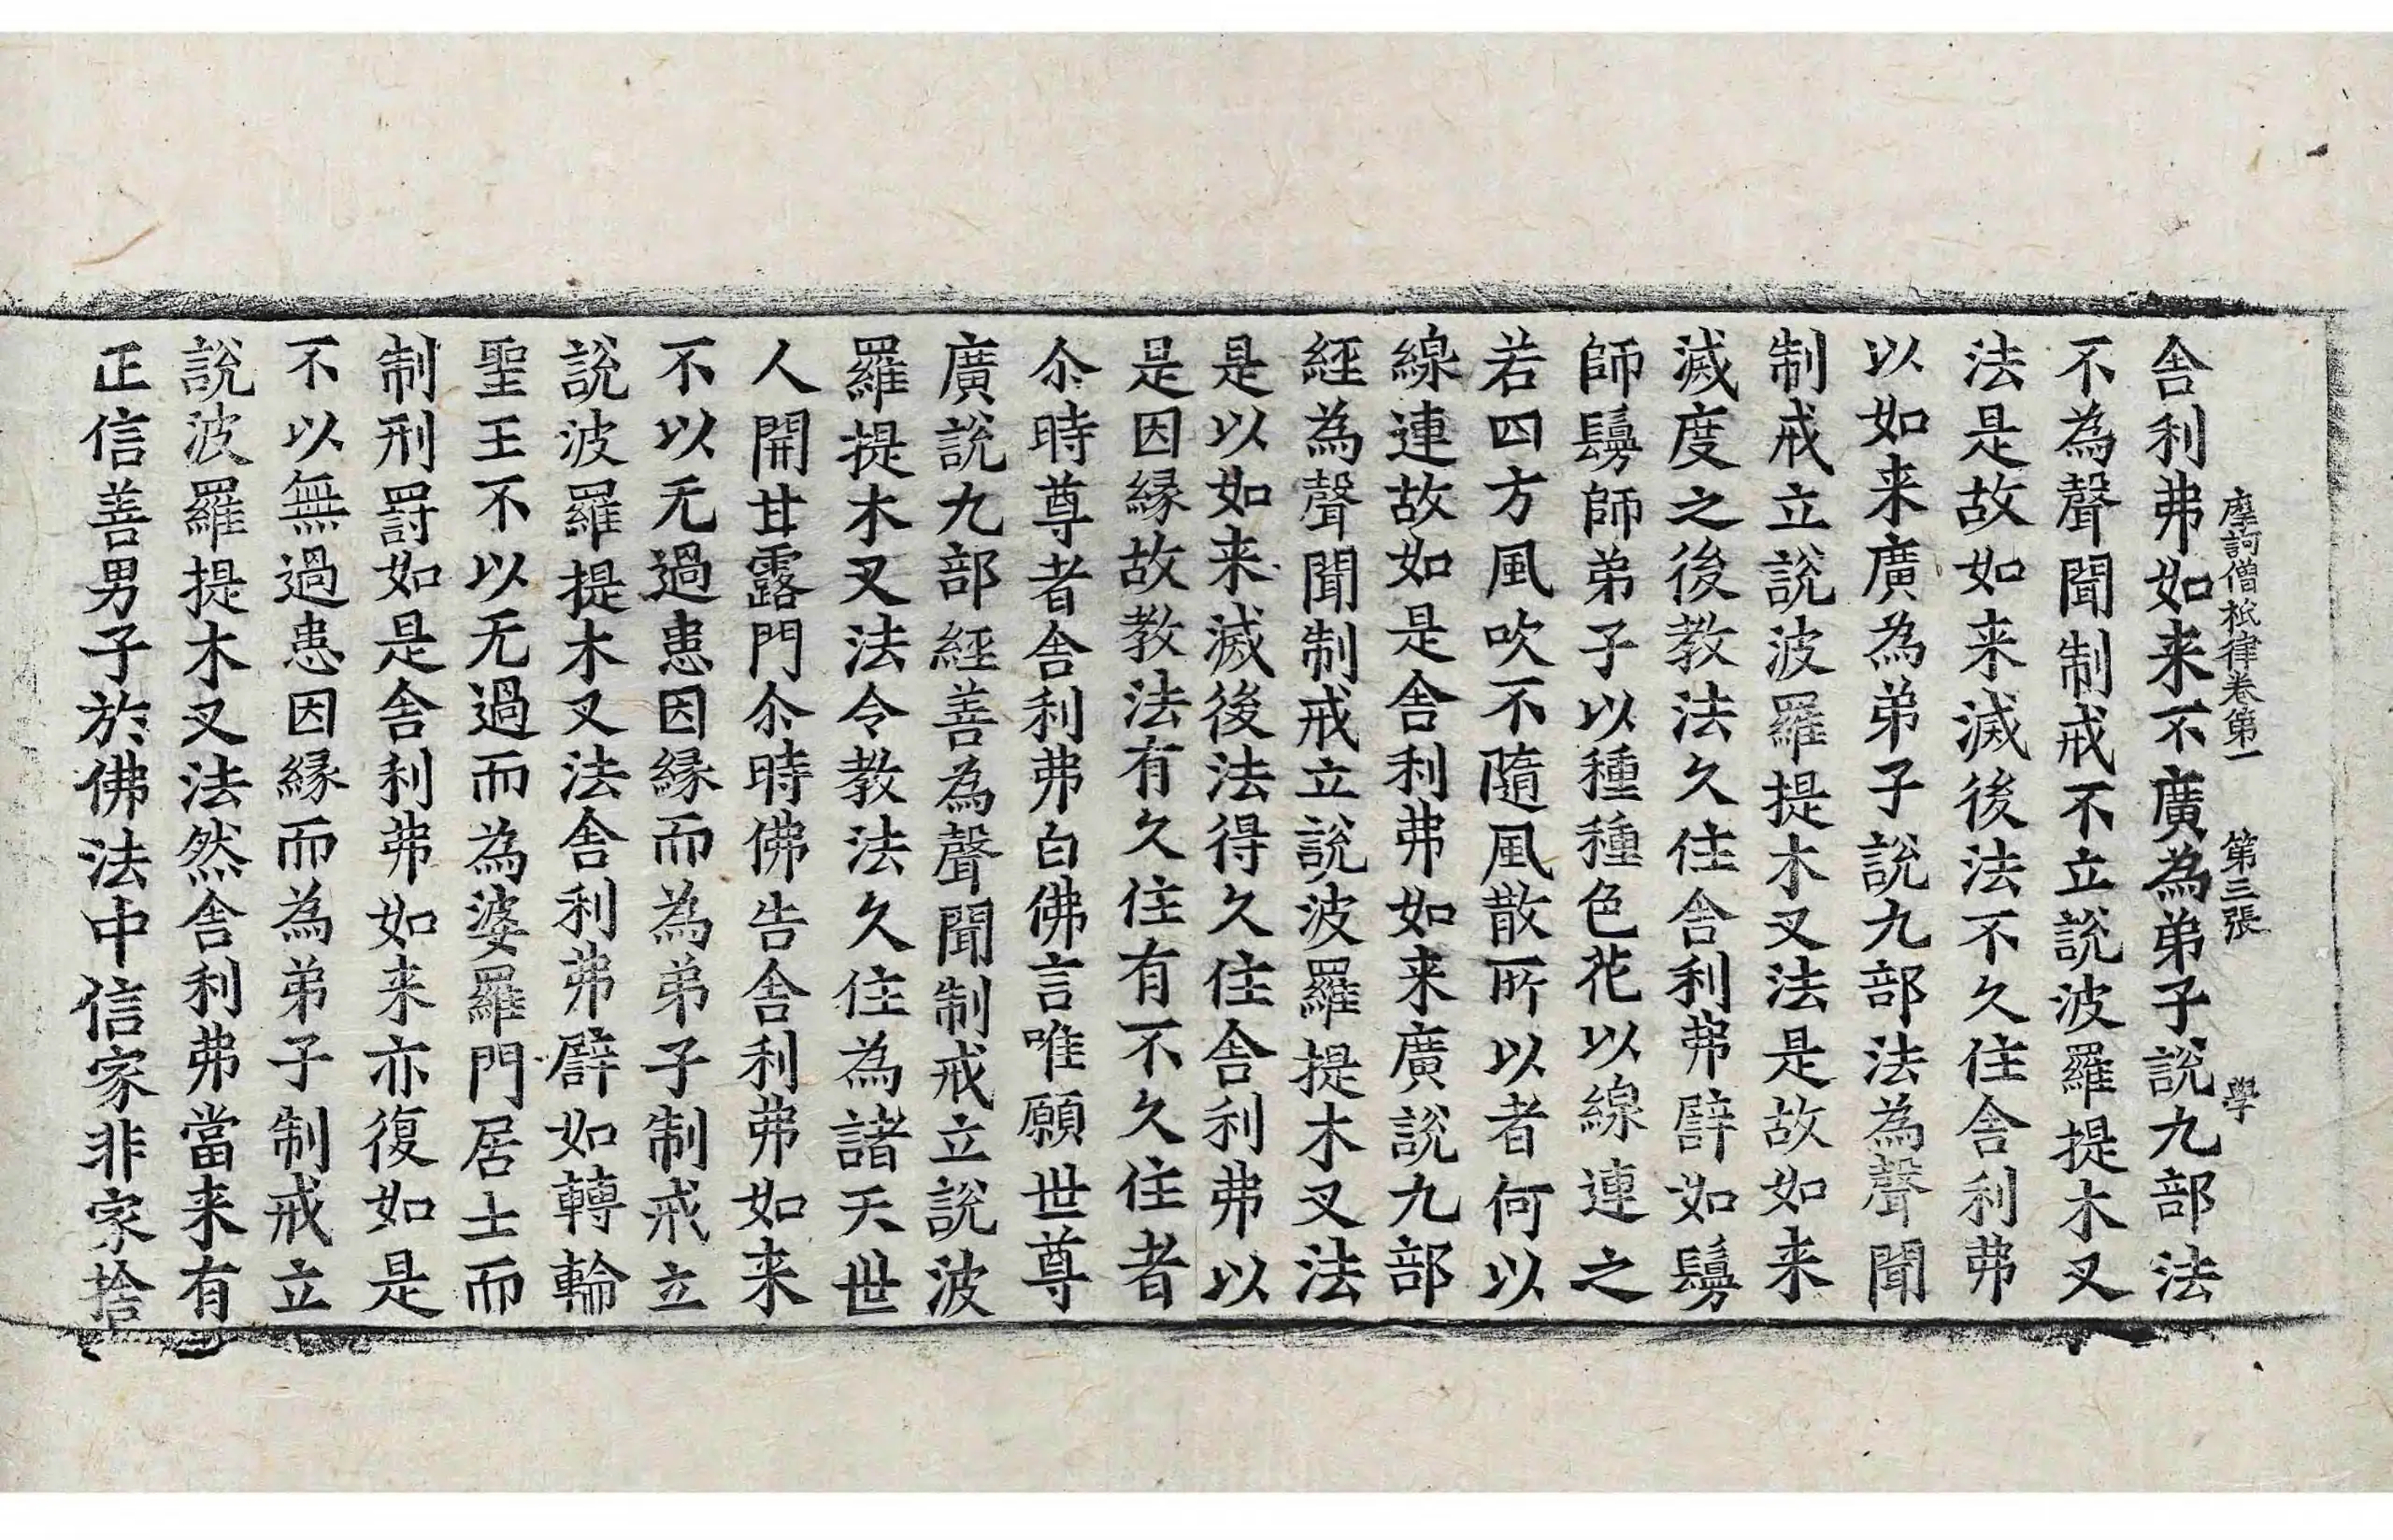 摩訶僧祇律卷第一 第三張 學
舎利弗如来不廣為弟子說九部法
不為聲聞制戒不立說波羅提木叉
法是故如来滅後法不久住舎利弗
以如来廣為弟子說九部法為聲聞
制戒立說波羅提木叉法是故如来
滅度之後教法久住舎利弗譬如鬘
師鬘師弟子以種種色花以線連之
若四方風吹不隨風散所以者何以
線連故如是舎利弗如来廣說九部
経為聲聞制戒立說波羅提木叉法
是以如来滅後法得久住舎利弗以
是因縁故教法有久住有不久住者
尒時尊者舎利弗白佛言唯願世尊
廣說九部経善為聲聞制戒立說波
羅提木叉法令教法久住為諸天世
人開甘露門尒時佛告舎利弗如来
不以无過患因縁而為弟子制戒立
說波羅提木叉法舎利弗譬如轉輪
聖王不以无過而為婆羅門居士而
制刑罸如是舎利弗如来亦復如是
不以無過患因縁而為弟子制戒立
說波羅提木叉法然舎利弗當来有
正信善男子於佛法中信家非家捨